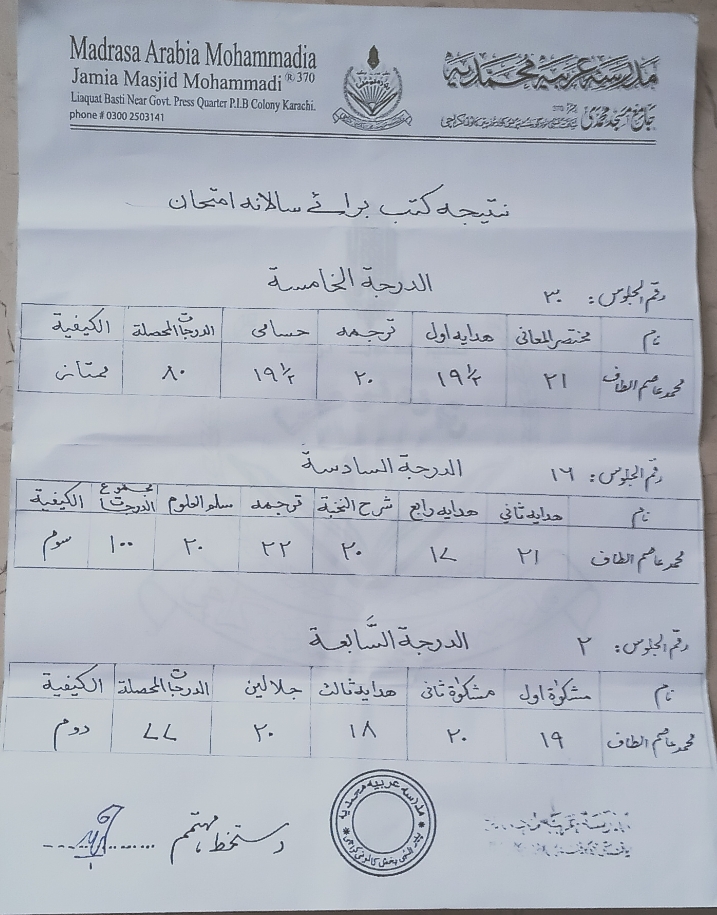 Madrasa Arabia Mohammadia
Jamia Masjid Mohammadi ® 370
Liaquat Basti Near Govt. Press Quarter P.I.B Colony Karachi.
phone # 0300 2503141
مدرسہ عربیہ محمدیہ
جامع مسجد محمدی
نتیجہ کتب برائے سالانہ امتحان
رقم الجلوس: ۳۰ الدرجة الخامسة
نام مختصر المعانی هدایہ اول ترجمہ حسامی الدرجات المحصلة الكيفية
محمد عاصم الطاف ۲۱ ۱۹ ½ ۲۰ ۱۹ ½ ۸۰ ممتاز
رقم الجلوس: ۱۶ الدرجة السادسة
نام هدایہ ثانی هدایہ رابع شرح النخبة ترجمہ سلم العلوم مجموع الدرجات الكيفية
محمد عاصم الطاف ۲۱ ۱۷ ۲۰ ۲۲ ۲۰ ۱۰۰ سوم
رقم الجلوس: ۲ الدرجة السَّابعة
نام مشکوٰة اول مشکوٰة ثانی هدایہ ثالث جلالین الدرجات المحصلة الكيفية
محمد عاصم الطاف ۱۹ ۲۰ ۱۸ ۲۰ ۷۷ دوم
مدرسہ عربیہ محمدیہ
دستخط مہتمم